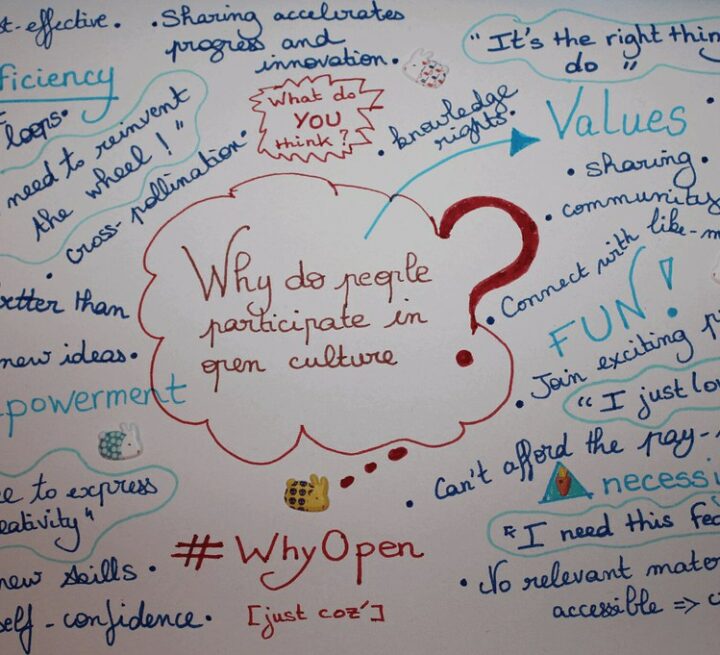 st-effective.
• Sharing accelerates
progress and
innovation.
ficiency
loops.
need to reinvent
the wheel!"
• cross-pollination.
What do
YOU
think?
• knowledge
rights.
"It's the right thin
do"
Values
• sharing.
• community
• Connect with like-m
FUN!
• Join exciting p
"I just lo
Why do people
participate in
open culture
?
etter than
new ideas.
powerment
e to express
eativity"
new skills.
self-confidence.
#WhyOpen
[just coz']
• Can't afford the pay-
necessi
"I need this fea
• No relevant mater
accessible => c